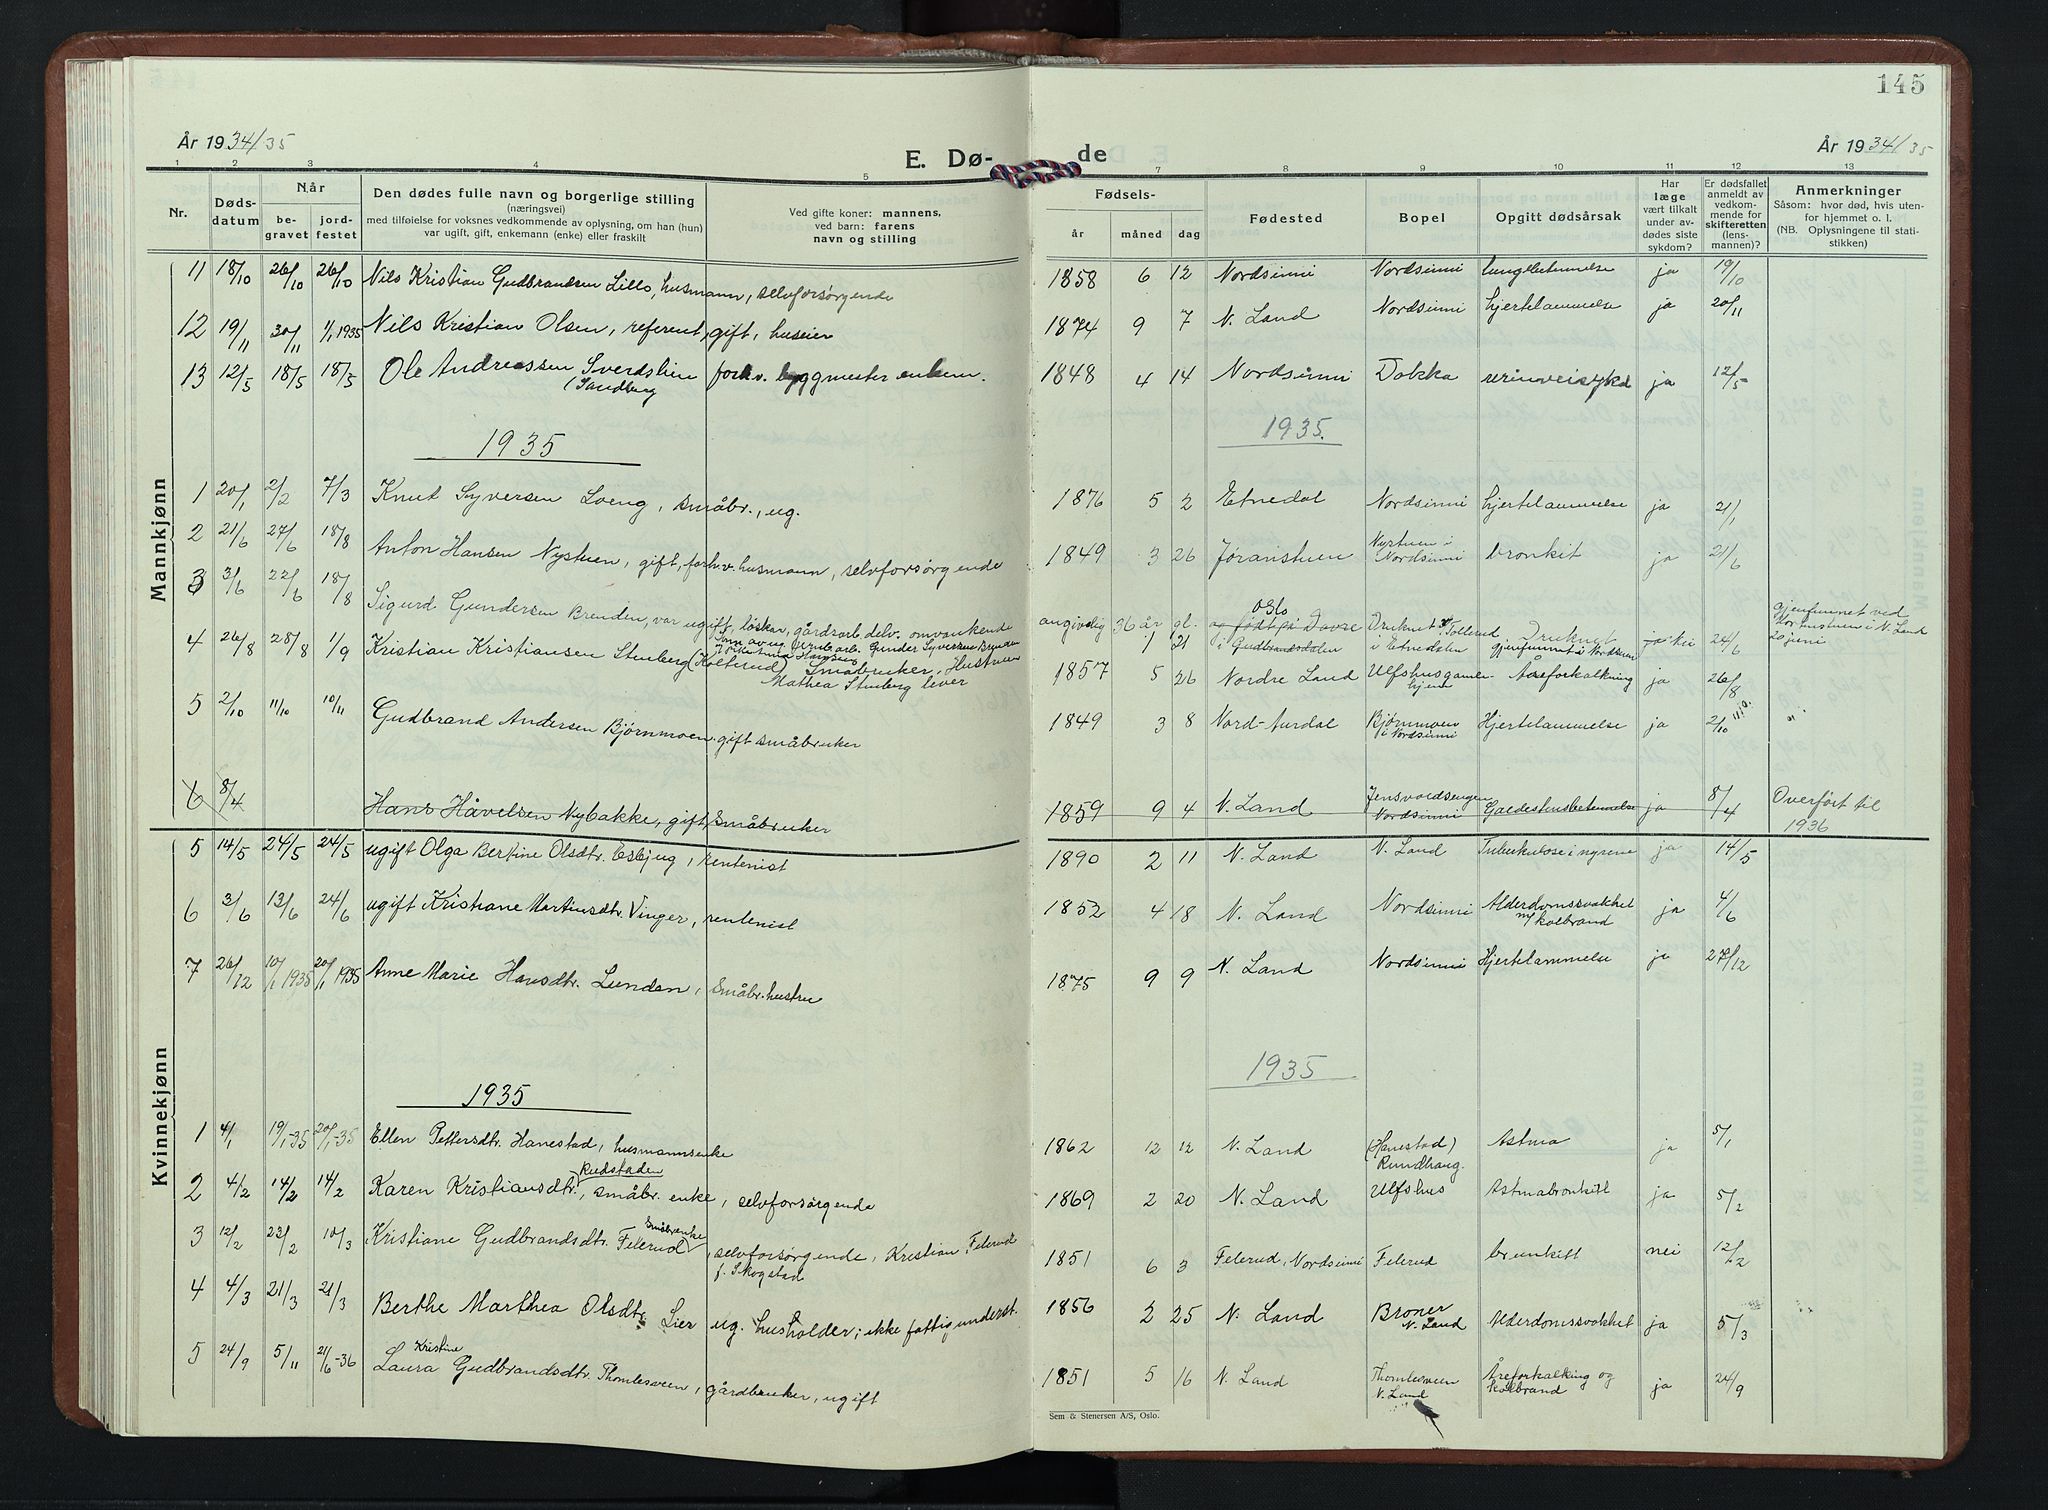 145
År 1934/35
E. Dø-
de
År 1934/35
1 2 3 4 5 7 8 9 10 11 12 13
Nr.
Døds-
datum
Når
be-
gravet
jord-
festet
Den dødes fulle navn og borgerlige stilling
(næringsvei)
med tilføielse for voksnes vedkommende av oplysning, om han (hun)
var ugift, gift, enkemann (enke) eller fraskilt
Ved gifte koner: mannens,
ved barn: farens
navn og stilling
Fødsels-
år måned dag
Fødested
Bopel
Opgitt dødsårsak
Har
læge
vært tilkalt
under av-
dødes siste
sykdom?
Er dødsfallet
anmeldt av
vedkom-
mende for
skifteretten
(lens-
mannen)?
Anmerkninger
Såsom: hvor død, hvis uten-
for hjemmet o. l.
(NB. Oplysningene til stati-
stikken)
Mannkjønn
11 18/10 26/10 26/10 Nils Kristian Gudbrandsen Lillo, husmann, selvforsørgende 1858 6 12 Nordsinni Nordsinni lungebetennelse ja 19/10
12 19/11 30/11 1/1 1935 Nils Kristian Olsen, referent, gift, huseier 1874 9 7 N. Land Nordsinni hjertelammelse ja 20/11
13 12/5 18/5 18/5 Ole Andreassen Sverdslien forhv. byggmester enkem. 1848 4 14 Nordsinni Dokka urinveisykd ja 12/5
(Sandberg
1935
1935.
1 20/1 2/2 7/3 Knut Syversen Loeng, småbr., ug. 1876 5 2 Etnedal Nordsinni hjertelammelse ja 21/1
2 21/6 27/6 18/8 Anton Hansen Nystuen, gift, forhv. husmann, selvforsørgende 1849 3 26 Joranstuen Nystuen i Nordsinni bronkit ja 21/6
3 3/6 22/6 18/8 Sigurd Gundersen Brenden, var ugift, løskar, gårdsarb. delv. omvankende
angivelig 36 år gl. og født på Dovre i Gudbrandsdalen Oslo 1 21 Druknet v/ Tollerud i Etnedalen Druknet gjenfunnet i Nordsinni ja nei 24/6 gjenfunnet ved
i N. Land
20 juni
4 26/8 28/8 1/9 Kristian Kristiansen Stenberg (Kolterud) Småbruker, Hustruen
Mathea Stenberg lever
1857 5 26 Nordre Land Ulfshus gamlehjem Åreforkalkning ja 26/8
5 2/10 11/10 10/11 Gudbrand Andersen Bjørnmoen, gift småbruker 1849 3 8 Nord-Aurdal Bjørnmoen i Nordsinni Hjertelammelse ja 2/10
6 8/4 Hans Håvelsen Nybakke, gift, småbruker 1859 9 4 N. Land Jensvoldsengen Nordsinni Galdestensbetennelse ja 8/4 Overført til
1936
Kvinnekjønn
5 14/5 24/5 24/5 ugift Olga Bertine Olsdtr. Esbjug, rentenist 1890 2 11 N. Land N. Land Tuberkulose i nyrene ja 14/5
6 3/6 13/6 24/6 ugift Kristiane Martinsdtr. Vinger, rentenist 1852 4 18 N. Land Nordsinni Alderdomssvakhet m/ kolbrand ja 4/6
7 26/12 10/1 1935 20/1 1935 Anne Marie Hansdtr. Lunden, småbr. hustru 1875 9 9 N. Land Nordsinni Hjertelammelse ja 27/12
1935
1935
1 4/1 19/1-35 20/1-35 Ellen Pettersdtr. Hanestad, husmannsenke 1862 12 12 N. Land (Hanestad) Rundhaug. Astma ja 5/1
2 4/2 14/2 14/2 Karen Kristiansdtr. Rudstaden, småbr. enke, selvforsørgende 1869 2 20 N. Land Ulfshus Astmabronkitt ja 5/2
3 12/2 22/2 10/3 Kristiane Gudbrandsdtr. Felerud småbr.enke, selvforsørgende, Kristian Felerud
f. Skogstad
1851 6 3 Felerud, Nordsinni Felerud bronkitt nei 12/2
4 4/3 21/3 21/3 Berthe Marthea Olsdtr. Lier ug. husholder; ikke fattigunderst. 1856 2 25 N. Land Broner N. Land Alderdomssvakhet ja 5/3
5 24/9 5/11 21/6-36 Laura Kristine Gudbrandsdtr. Thomlesveen, gårdbruker, ugift 1851 5 16 N. Land Thomlesveen N. Land Åreforkalking og kolbrand ja 24/9
Sem & Stenersen A/S, Oslo.